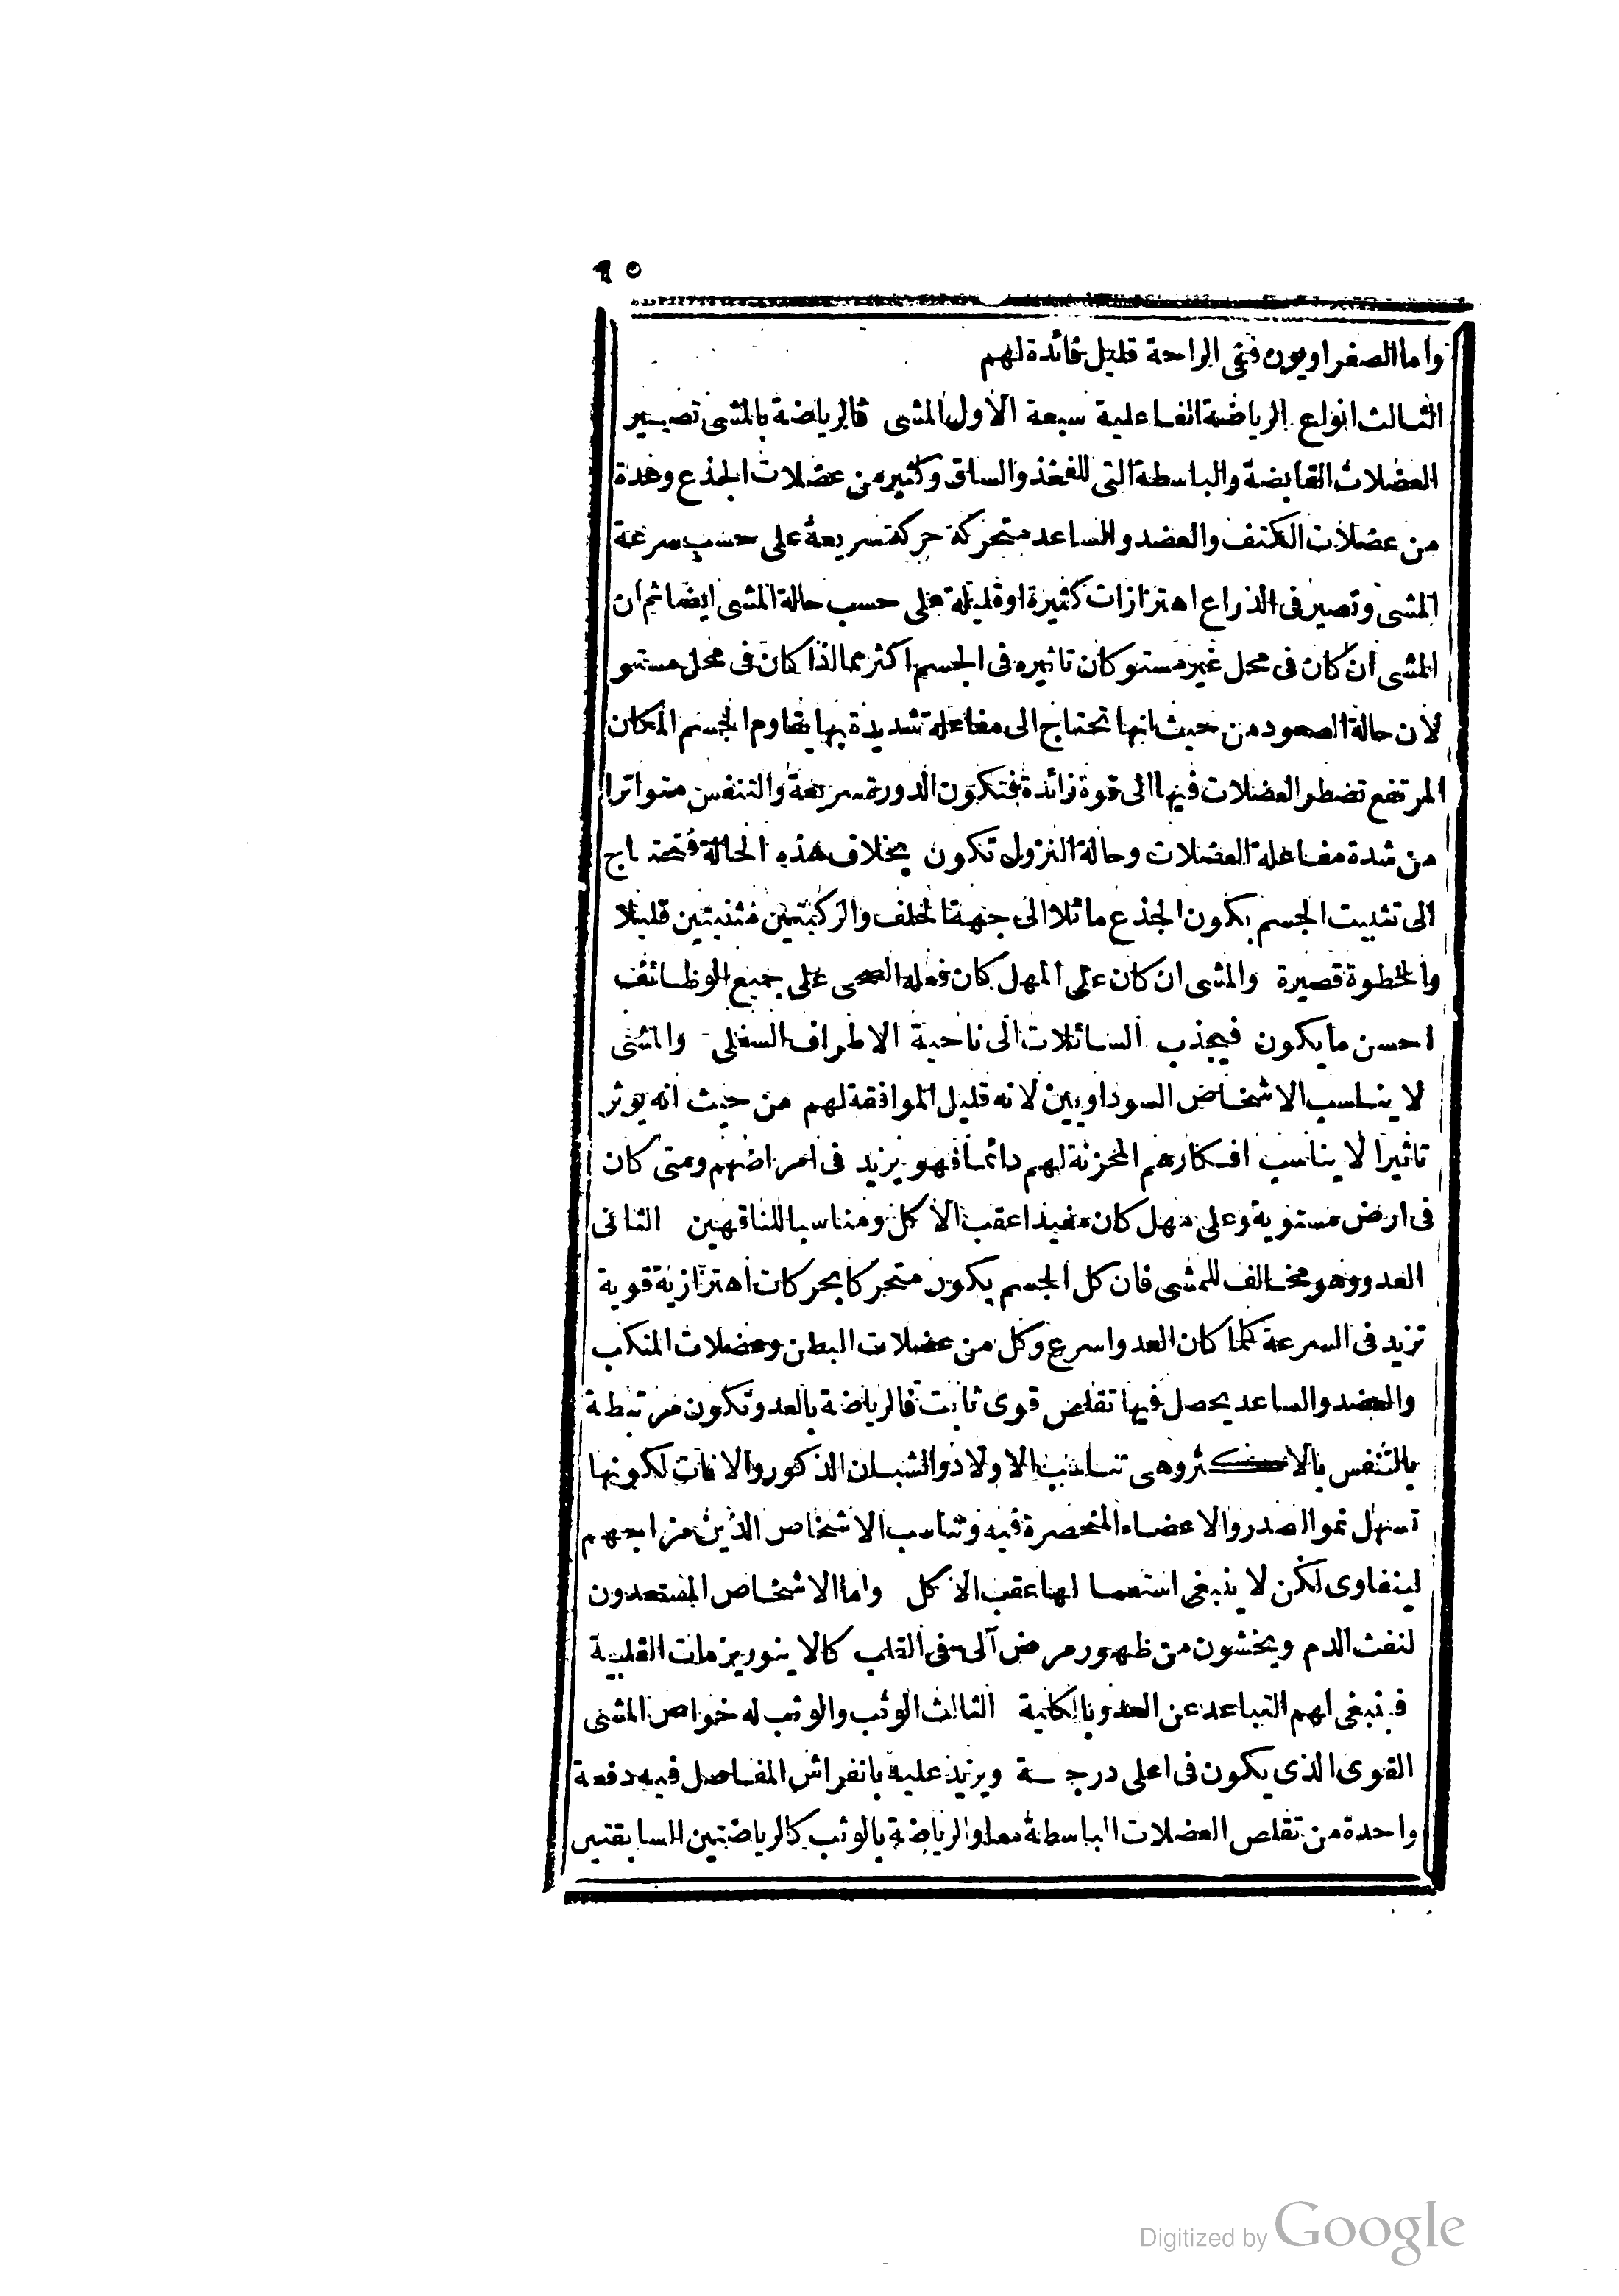 ٩٥
واما الصفراويون ففى الراحة قليل فائدة لهم
الثالث انواع الرياضة الفاعلية سبعة الاول المشى فالرياضة بالمشى تصير
العضلات القابضة والباسطة التى للفخذ والساق وكثير من عضلات الجذع وعدة
من عضلات الكتف والعضد والساعد متحركة حركة سريعة على حسب سرعة
المشى وتصير فى الذراع اهتزازات كثيرة اوقليلة على حسب حالة المشى ايضا ثم ان
المشى ان كان فى محل غير مستو كان تاثيره فى الجسم اكثر مما اذا كان فى محل مستو
لان حالة الصعود من حيث انها تحتاج الى مفاعلة شديدة بها يقاوم الجسم المكان
المرتفع تضطر العضلات فيها الى قوة زائدة فتكون الدورة سريعة والتنفس متواترا
من شدة مفاعلة العضلات وحالة النزول تكون بخلاف هذه الحالة فتحتاج
الى تثبيت الجسم بكون الجذع مائلا الى جهة الخلف والركبتين مثنيتين قليلا
والخطوة قصيرة والمشى ان كان على المهل كان فعله الصحى على جميع الوظائف
احسن مايكون فيجذب السائلات الى ناحية الاطراف السفلى والمشى
لا يناسب الاشخاص السوداويين لانه قليل الموافقة لهم من حيث انه يوثر
تاثيرا لا يناسب افكارهم المحزنة لهم دائما فهو يزيد فى امراضهم ومتى كان
فى ارض مستوية وعلى مهل كان مفيدا عقب الاكل ومناسبا للناقهين الثانى
العدو وهو مخالف للمشى فان كل الجسم يكون متحركا بحركات اهتزازية قوية
تزيد فى السرعة كلما كان العدو اسرع وكل من عضلات البطن وعضلات المنكب
والعضد والساعد يحصل فيها تقلص قوى ثابت فالرياضة بالعدو تكون مرتبطة
بالتنفس بالاكثر وهى تناسب الاولاد والشبان الذكور والاناث لكونها
تسهل نمو الصدر والاعضاء المنحصرة فيه وتناسب الاشخاص الذين مزاجهم
لينفاوى لكن لا ينبغى استعمالها عقب الاكل واما الاشخاص المستعدون
لنفث الدم ويخشون من ظهور مرض آلى فى القلب كالاينوريزمات القلبية
فينبغى لهم التباعد عن العدو بالكلية الثالث الوثب والوثب له خواص المشى
القوى الذى يكون فى اعلى درجة ويزيد عليه بانفراش المفاصل فيه دفعة
واحدة من تقلص العضلات الباسطة معا والرياضة بالوثب كالرياضتين السابقتين
Digitized by Google